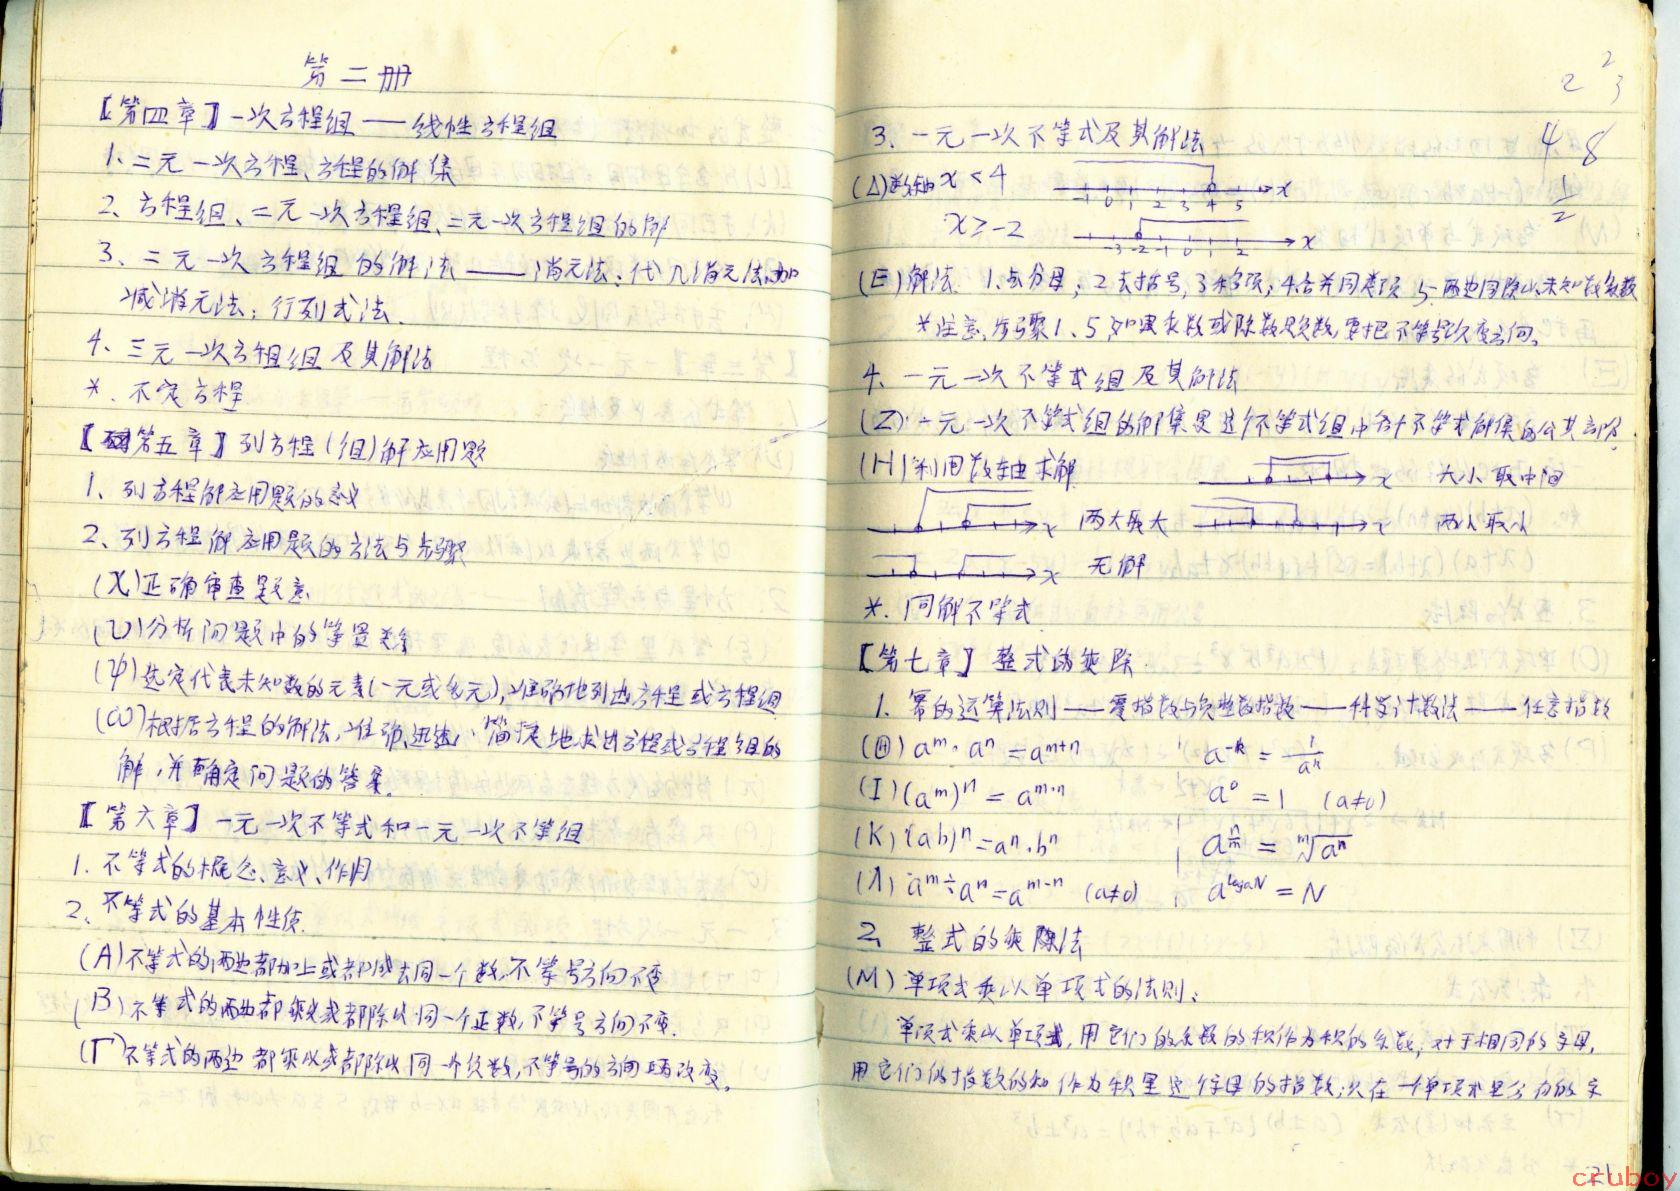 第二册
【第四章】一次方程组——线性方程组
1、二元一次方程、方程的解集
2、方程组、二元一次方程组、二元一次方程组的解
3、二元一次方程组的解法——消元法：代入消元法、加
减消元法；行列式法.
4、三元一次方程组及其解法
*、不定方程
【第五章】列方程(组)解应用题
1、列方程解应用题的意义
2、列方程解应用题的方法与步骤
(X)正确审查题意
(U)分析问题中的等量关系
(Ψ)选定代表未知数的元素(一元或多元),准确地列出方程或方程组
(Ω)根据方程的解法,准确、迅速、简捷地求出方程或方程组的
解,并确定问题的答案.
【第六章】一元一次不等式和一元一次不等组
1. 不等式的概念、意义、作用
2、不等式的基本性质.
(A)不等式的两边都加上或都减去同一个数,不等号方向不变
(B)不等式的两边都乘以或都除以同一个正数,不等号方向不变.
(Γ)不等式的两边都乘以或都除以同一个负数,不等号的方向改变。
2 2 3
4 8
1/2
3、一元一次不等式及其解法
(Δ)数轴 x<4 -1 0 1 2 3 4 5 x
x≥-2 -3 -2 -1 0 1 2 x
(E)解法 1、去分母；2去括号；3移项；4合并同类项 5.两边同除以未知数系数
*注意,步骤1、5,如果乘数或除数是负数,要把不等号改变方向。
4、一元一次不等式组及其解法
(Z)一元一次不等式组的解集是这个不等式组中各个不等式解集的公共部分.
(H)利用数轴求解 x 大小取中间
x 两大取大 x 两小取小
x 无解
*、同解不等式
【第七章】整式的乘除.
1、幂的运算法则——零指数与负整数指数——科学计数法——任意指数
(Θ) aᵐ·aⁿ=aᵐ⁺ⁿ a⁻ᵏ=1/aᵏ
(I) (aᵐ)ⁿ=aᵐ·ⁿ a⁰=1 (a≠0)
(K) (ab)ⁿ=aⁿ·bⁿ a^(n/m)=ᵐ√aⁿ
(Λ) aᵐ÷aⁿ=aᵐ⁻ⁿ (a≠0) a^(logₐN)=N
2、整式的乘除法
(M)单项式乘以单项式的法则：
单项式乘以单项式,用它们的系数的积作为积的系数,对于相同的字母,
用它们的指数的和作为积里这个字母的指数;只在一个单项式里含有的字
21
cruboy